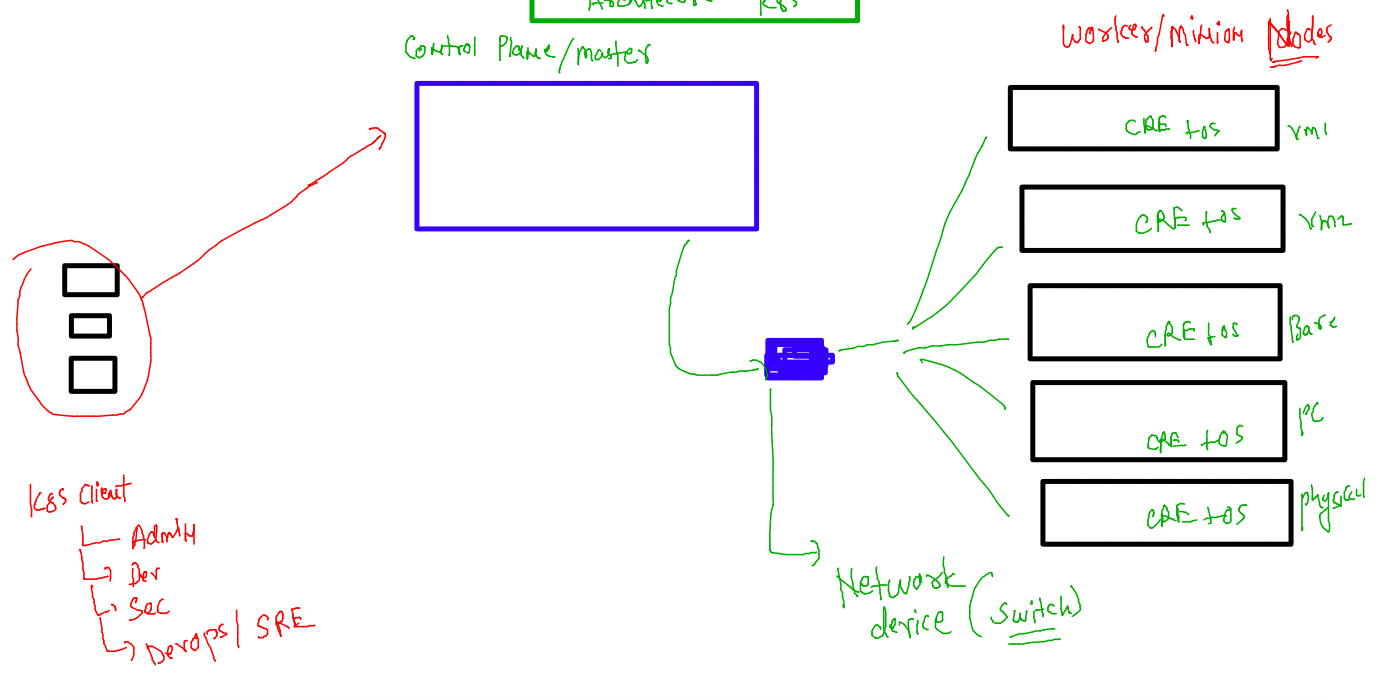 Architecture K8s
Control Plane/master
Worker/Minion Nodes
CRE +OS
vm1
CRE +OS
vm2
CRE +OS
Bare
CRE +OS
PC
CRE +OS
physical
K8s Client
Admin
Dev
Sec
Devops/ SRE
Network
device (switch)